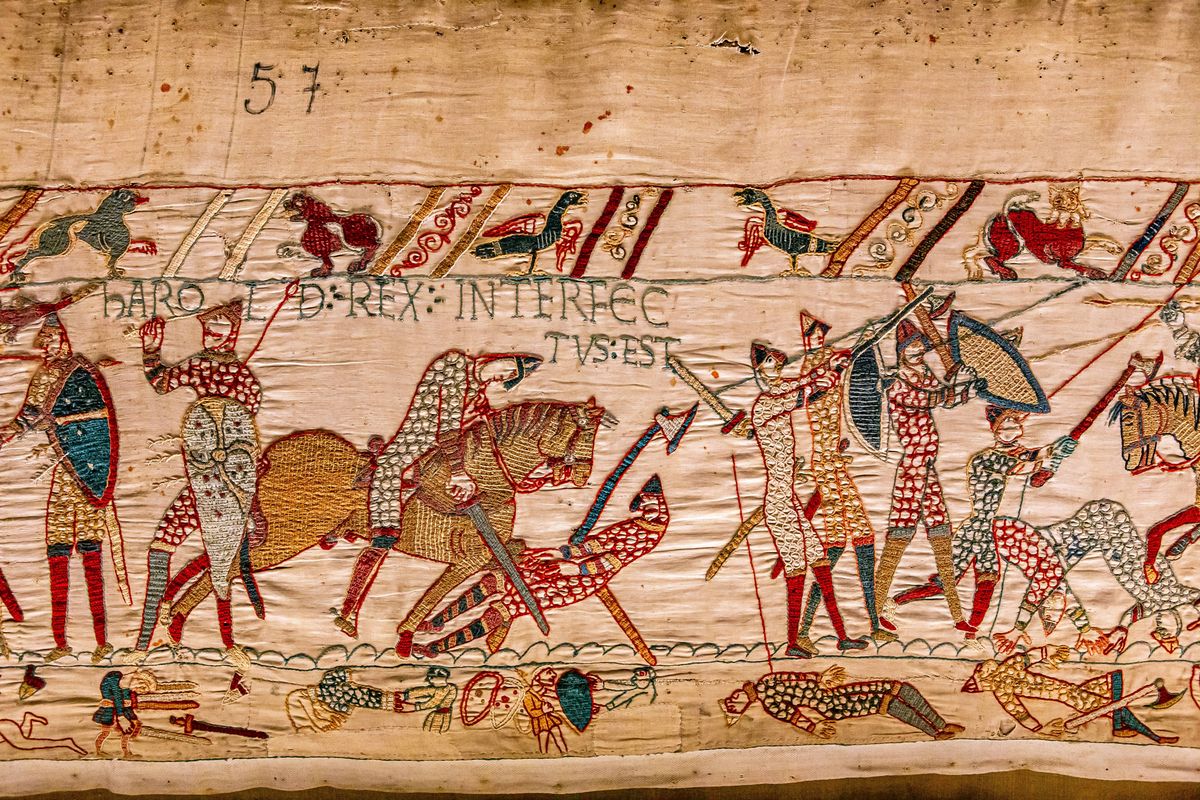 57
hARO L D:REX:INTERFEC
TVS:EST